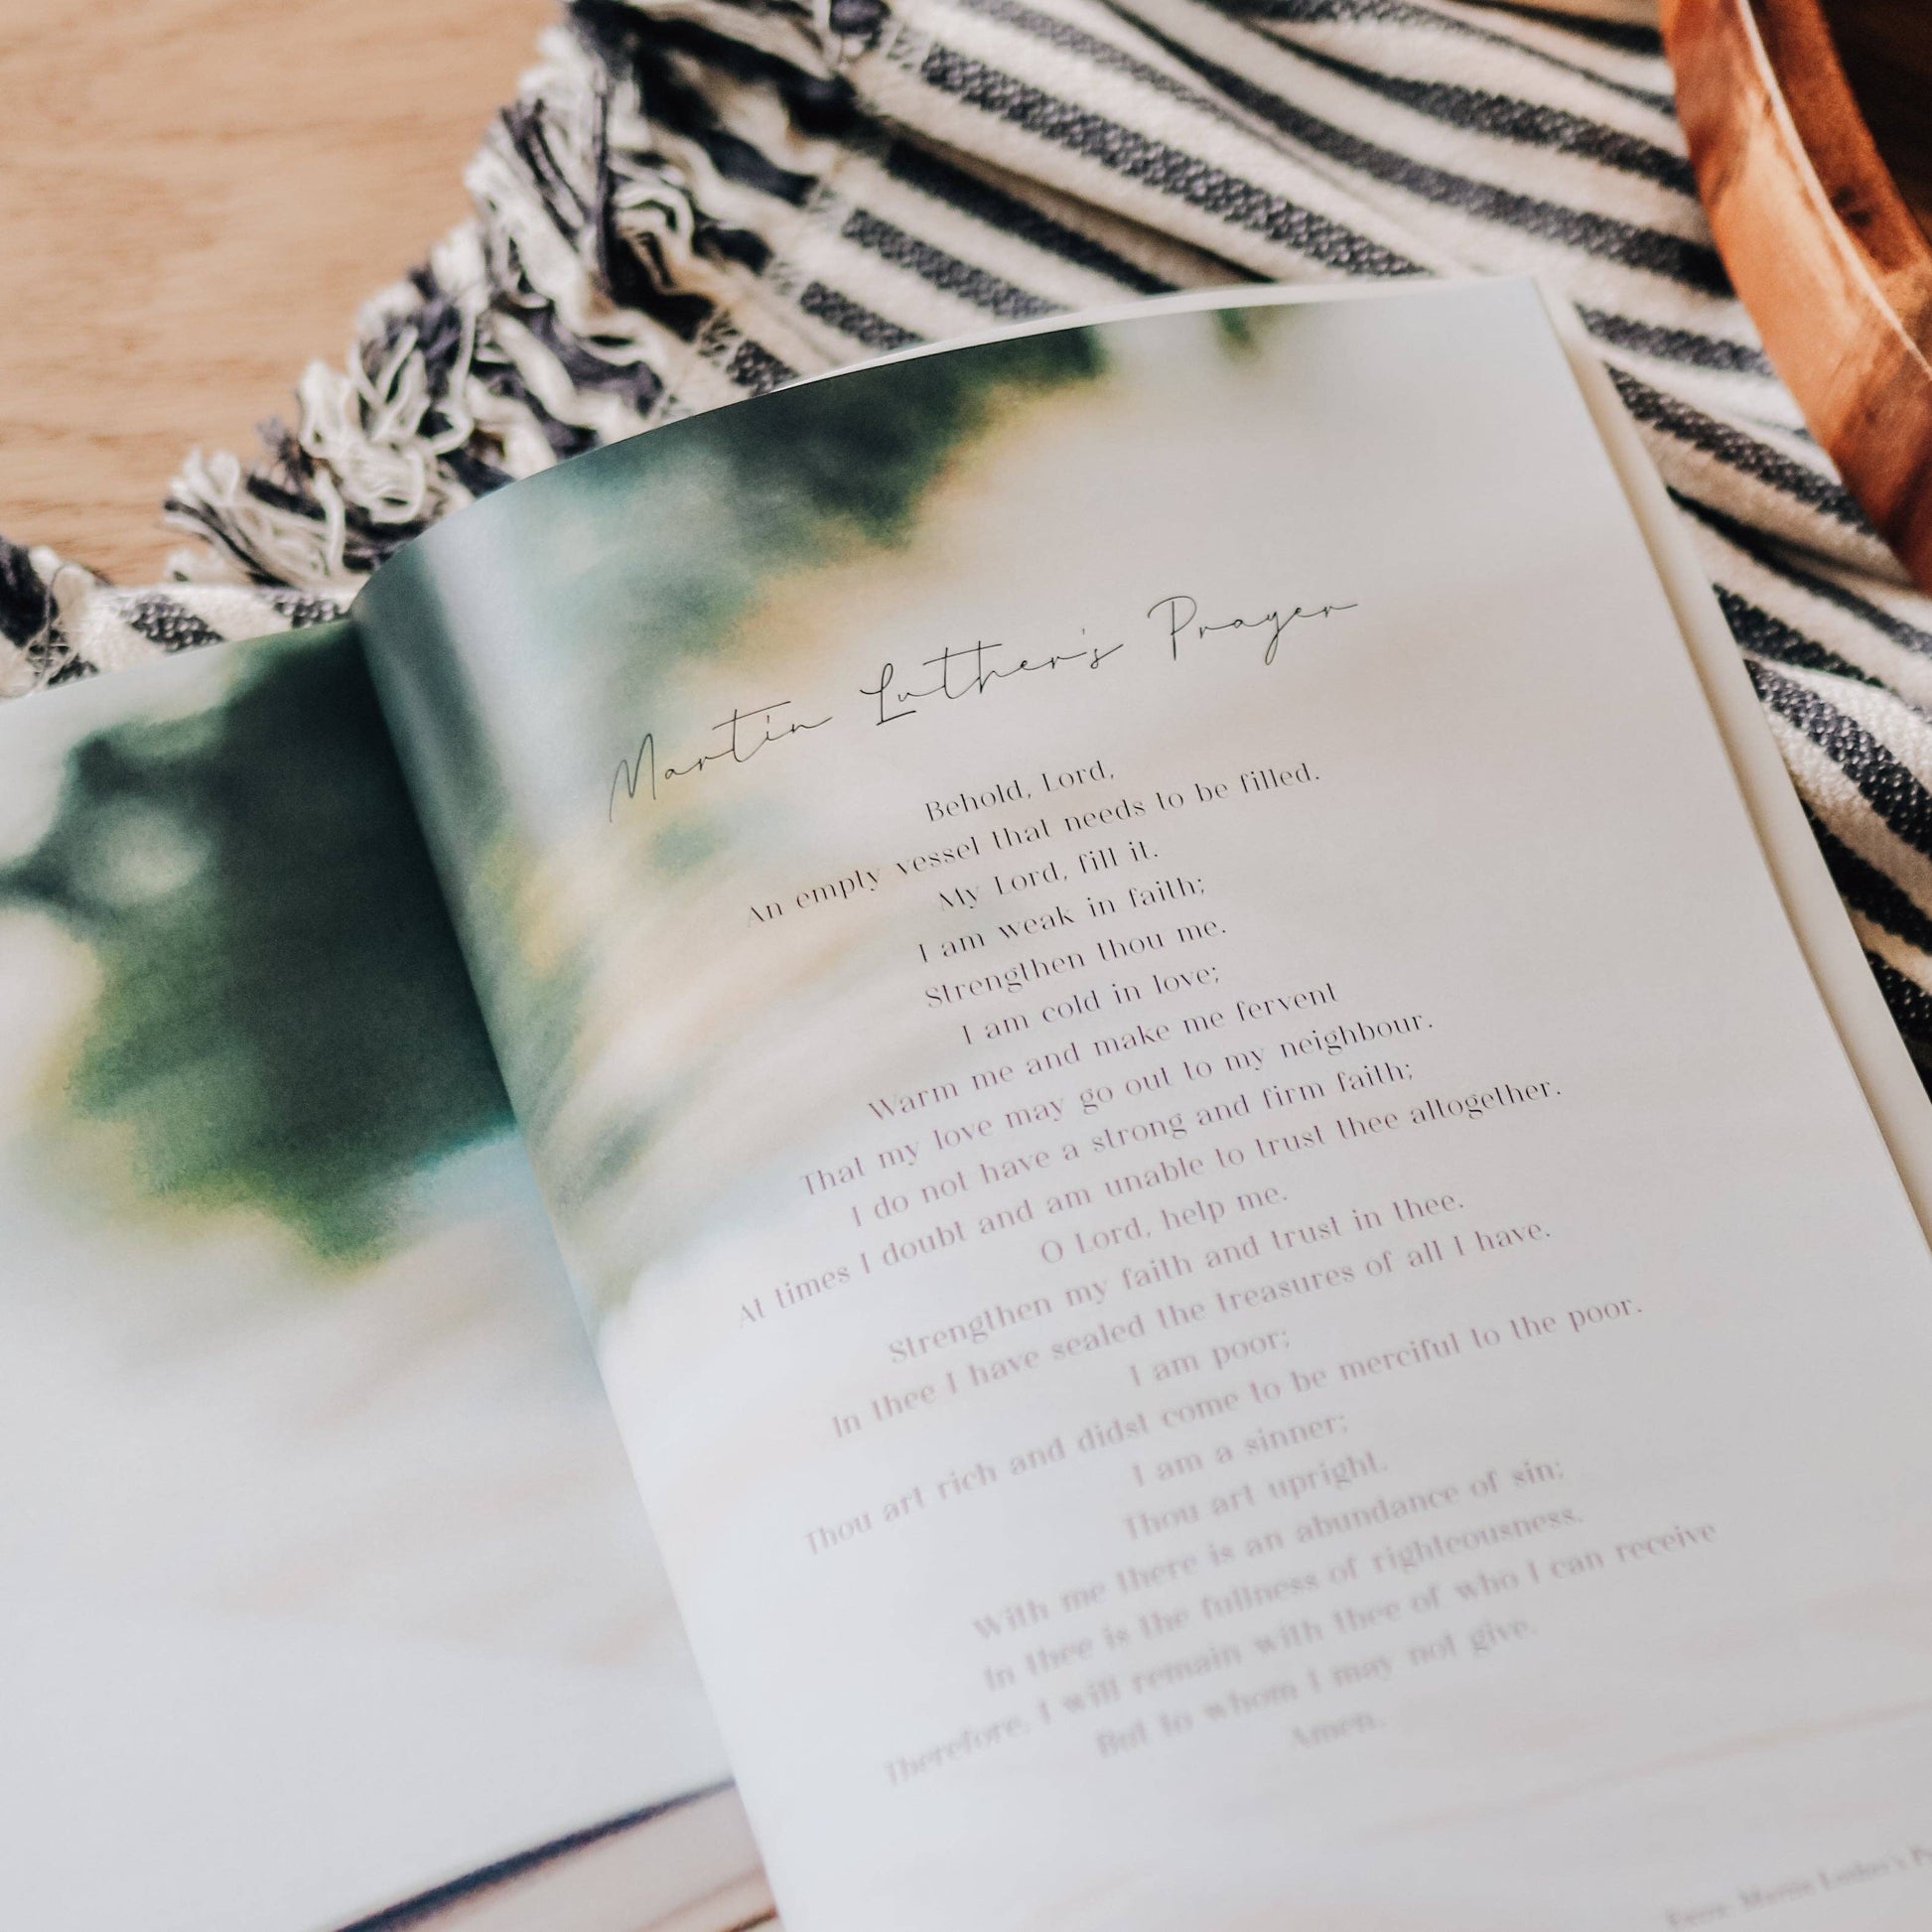 Martin Luther's Prayer
Behold, Lord,
An empty vessel that needs to be filled.
My Lord, fill it.
I am weak in faith;
Strengthen thou me.
I am cold in love;
Warm me and make me fervent
That my love may go out to my neighbour.
I do not have a strong and firm faith;
At times I doubt and am unable to trust thee altogether.
O Lord, help me.
Strengthen my faith and trust in thee.
In thee I have sealed the treasures of all I have.
I am poor;
Thou art rich and didst come to be merciful to the poor.
I am a sinner;
Thou art upright.
With me there is an abundance of sin;
In thee is the fullness of righteousness.
Therefore, I will remain with thee of who I can receive
But to whom I may not give.
Amen.
Luther's